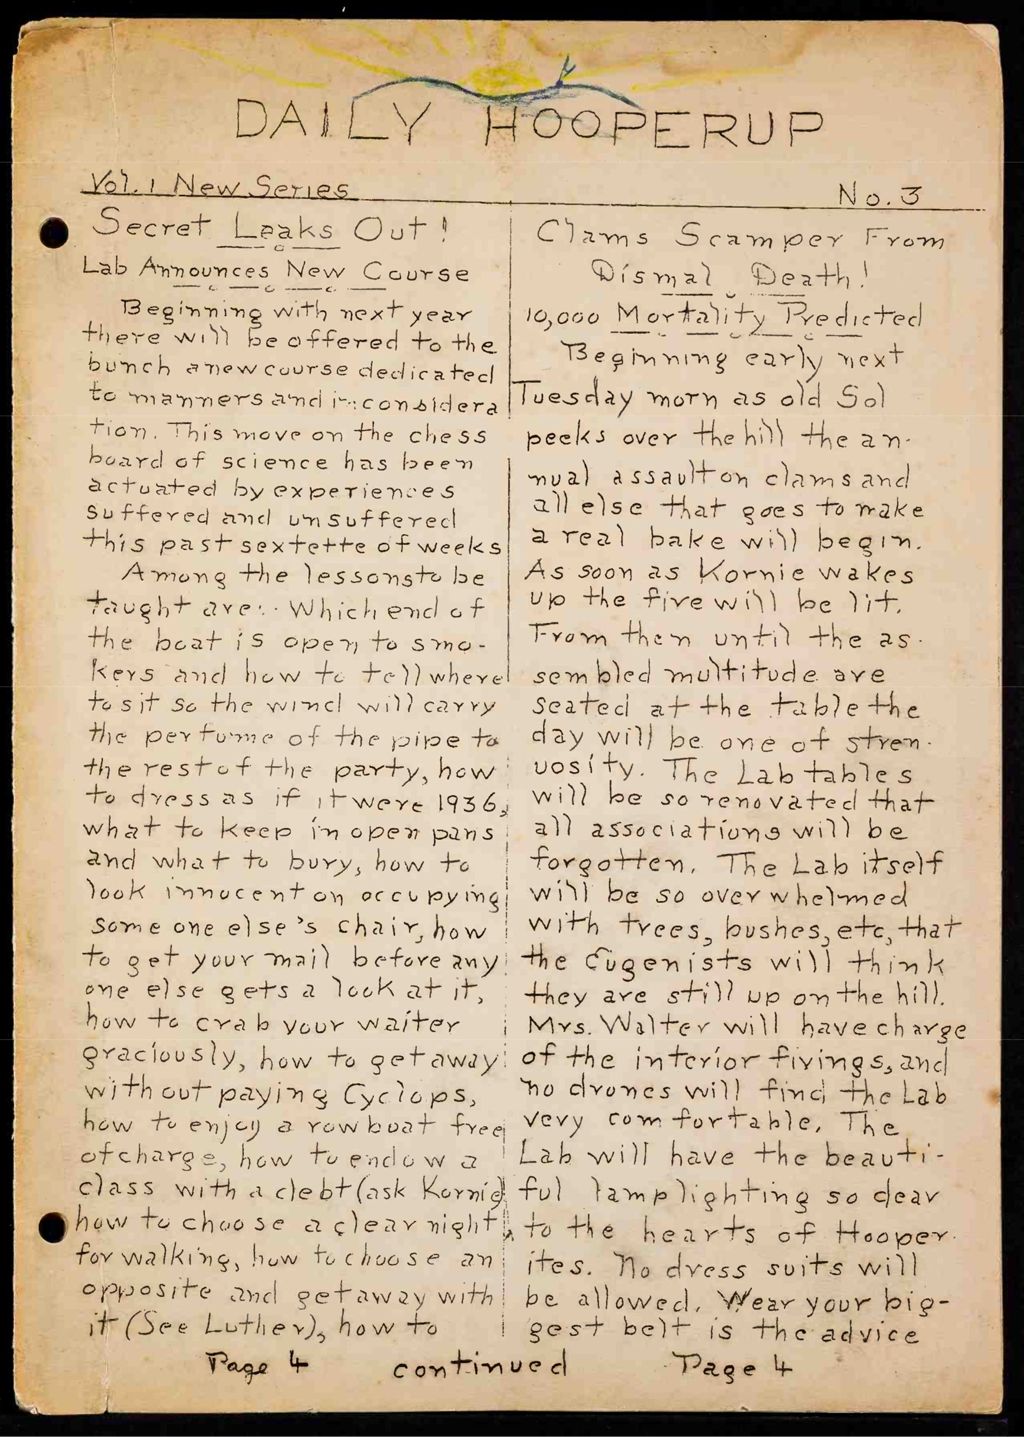 DAILY HOOPERUP
Vol. 1 New Series
No. 3
Secret Leaks Out!
Lab Announces New Course
Beginning with next year
there will be offered to the
bunch a new course dedicated
to manners and inconsidera
tion. This move on the chess
board of science has been
actuated by experiences
suffered and unsuffered
this past sextette of weeks
Among the lessons to be
taught are:- Which end of
the boat is open to smo-
kers and how to tell where
to sit so the wind will carry
the perfume of the pipe to
the rest of the party, how
to dress as if it were 1936,
what to keep in open pans
and what to bury, how to
look innocent on occupying
some one else's chair, how
to get your mail before any
one else gets a look at it,
how to crab your waiter
graciously, how to get away
without paying Cyclops,
how to enjoy a rowboat free
of charge, how to endow a
class with a debt (ask Kornie)
how to choose a clear night
for walking, how to choose an
opposite and get away with
it (See Luther), how to
Page 4 continued
Clams Scamper From
Dismal Death!
10,000 Mortality Predicted
Beginning early next
Tuesday morn as old Sol
peeks over the hill the an-
nual assault on clams and
all else that goes to make
a real bake will begin.
As soon as Kornie wakes
up the fire will be lit.
From then until the as-
sembled multitude are
seated at the table the
day will be one of stren-
uosity. The Lab tables
will be so renovated that
all associations will be
forgotten. The Lab itself
will be so overwhelmed
with trees, bushes, etc, that
the Eugenists will think
they are still up on the hill.
Mrs. Walter will have charge
of the interior fixings, and
no drones will find the Lab
very comfortable. The
Lab will have the beauti-
ful lamplighting so dear
to the hearts of Hooper-
ites. No dress suits will
be allowed. Wear your big-
gest belt is the advice
Page 4